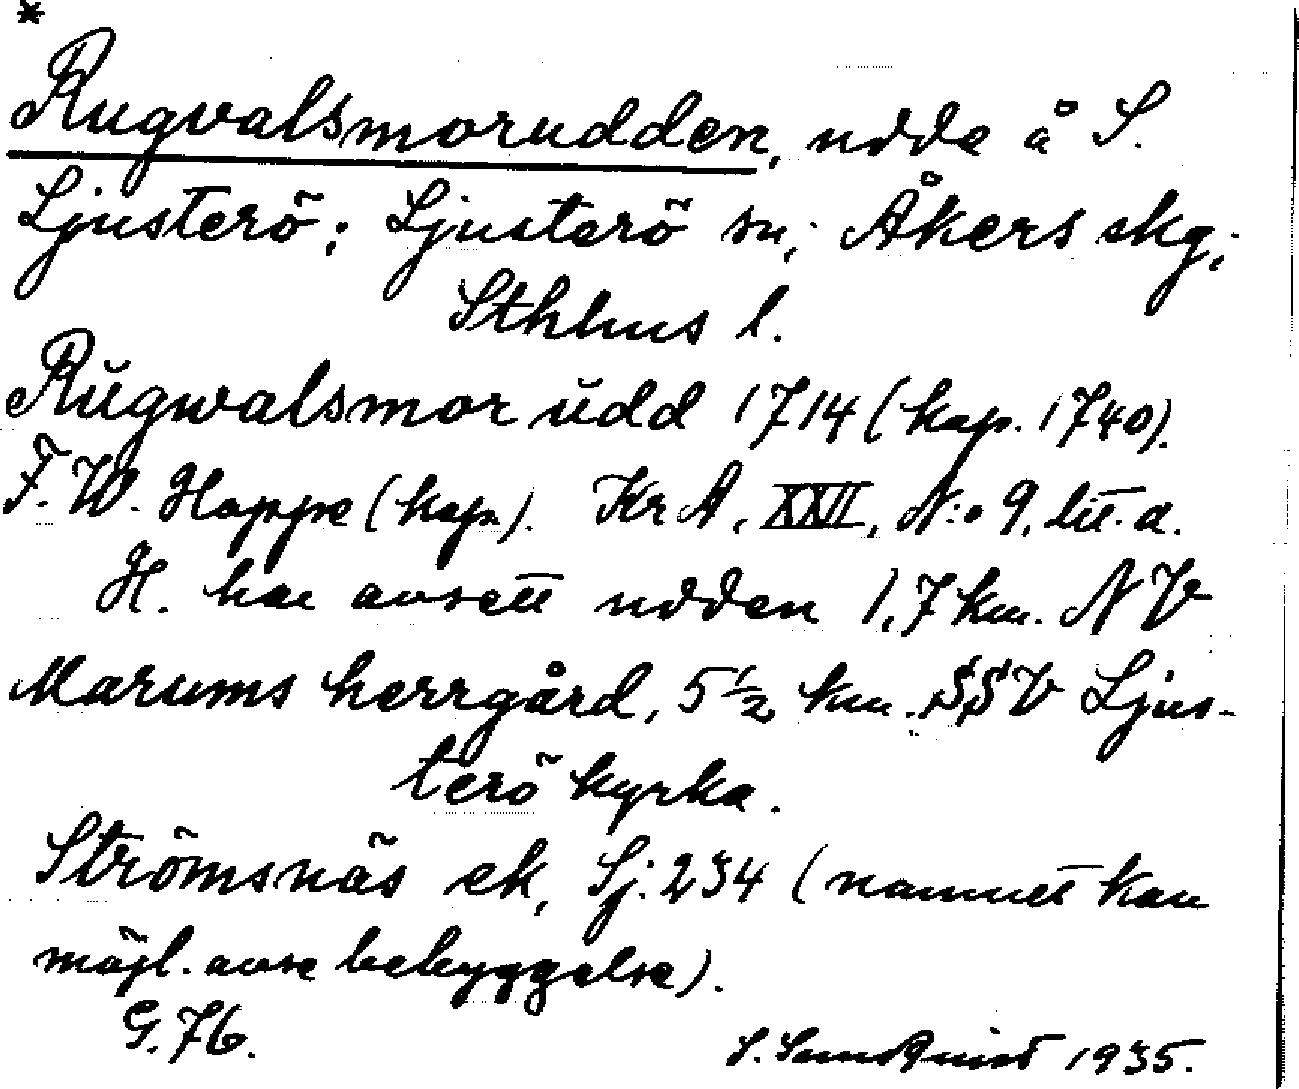 *
Rugvalsmorudden, udde å S.
Ljusterö; Ljusterö sn; Åkers skg;
Sthlms l.
Rŭgwalsmor ŭdd 1714 (kap. 1740).
F. W. Hoppe (kap.). KrA, XXII, N:o 9, litt. a.
H. har avsett udden 1,7 km. NV
Marums herrgård, 5 1/2 km. SSV Ljus-
terö kyrka.
Strömsnäs ek, Sj. 234 (namnet kan
möjl. avse bebyggelse).
G. 76.
S. Sundquist 1935.